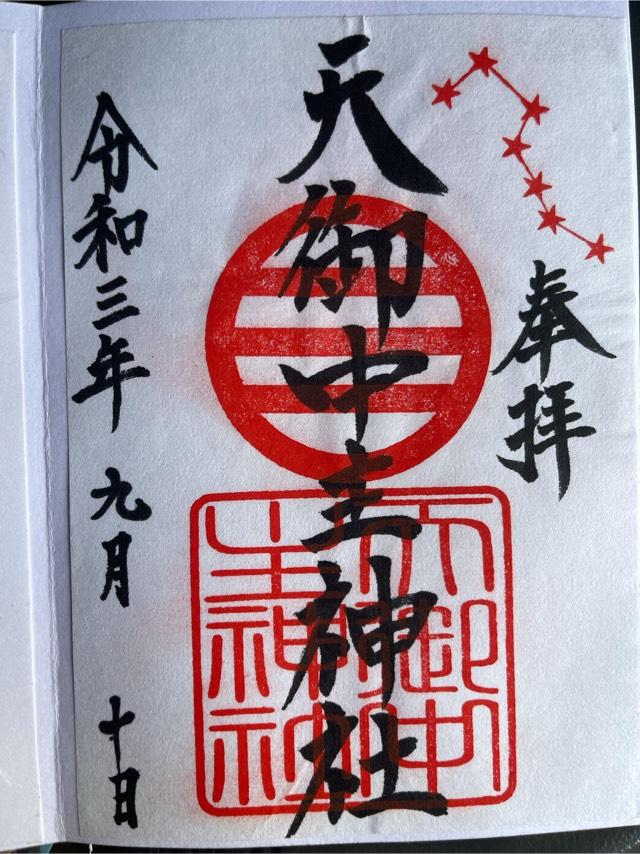 奉拝
天御中主神社
天御中
主神社
令和三年 九月 十日